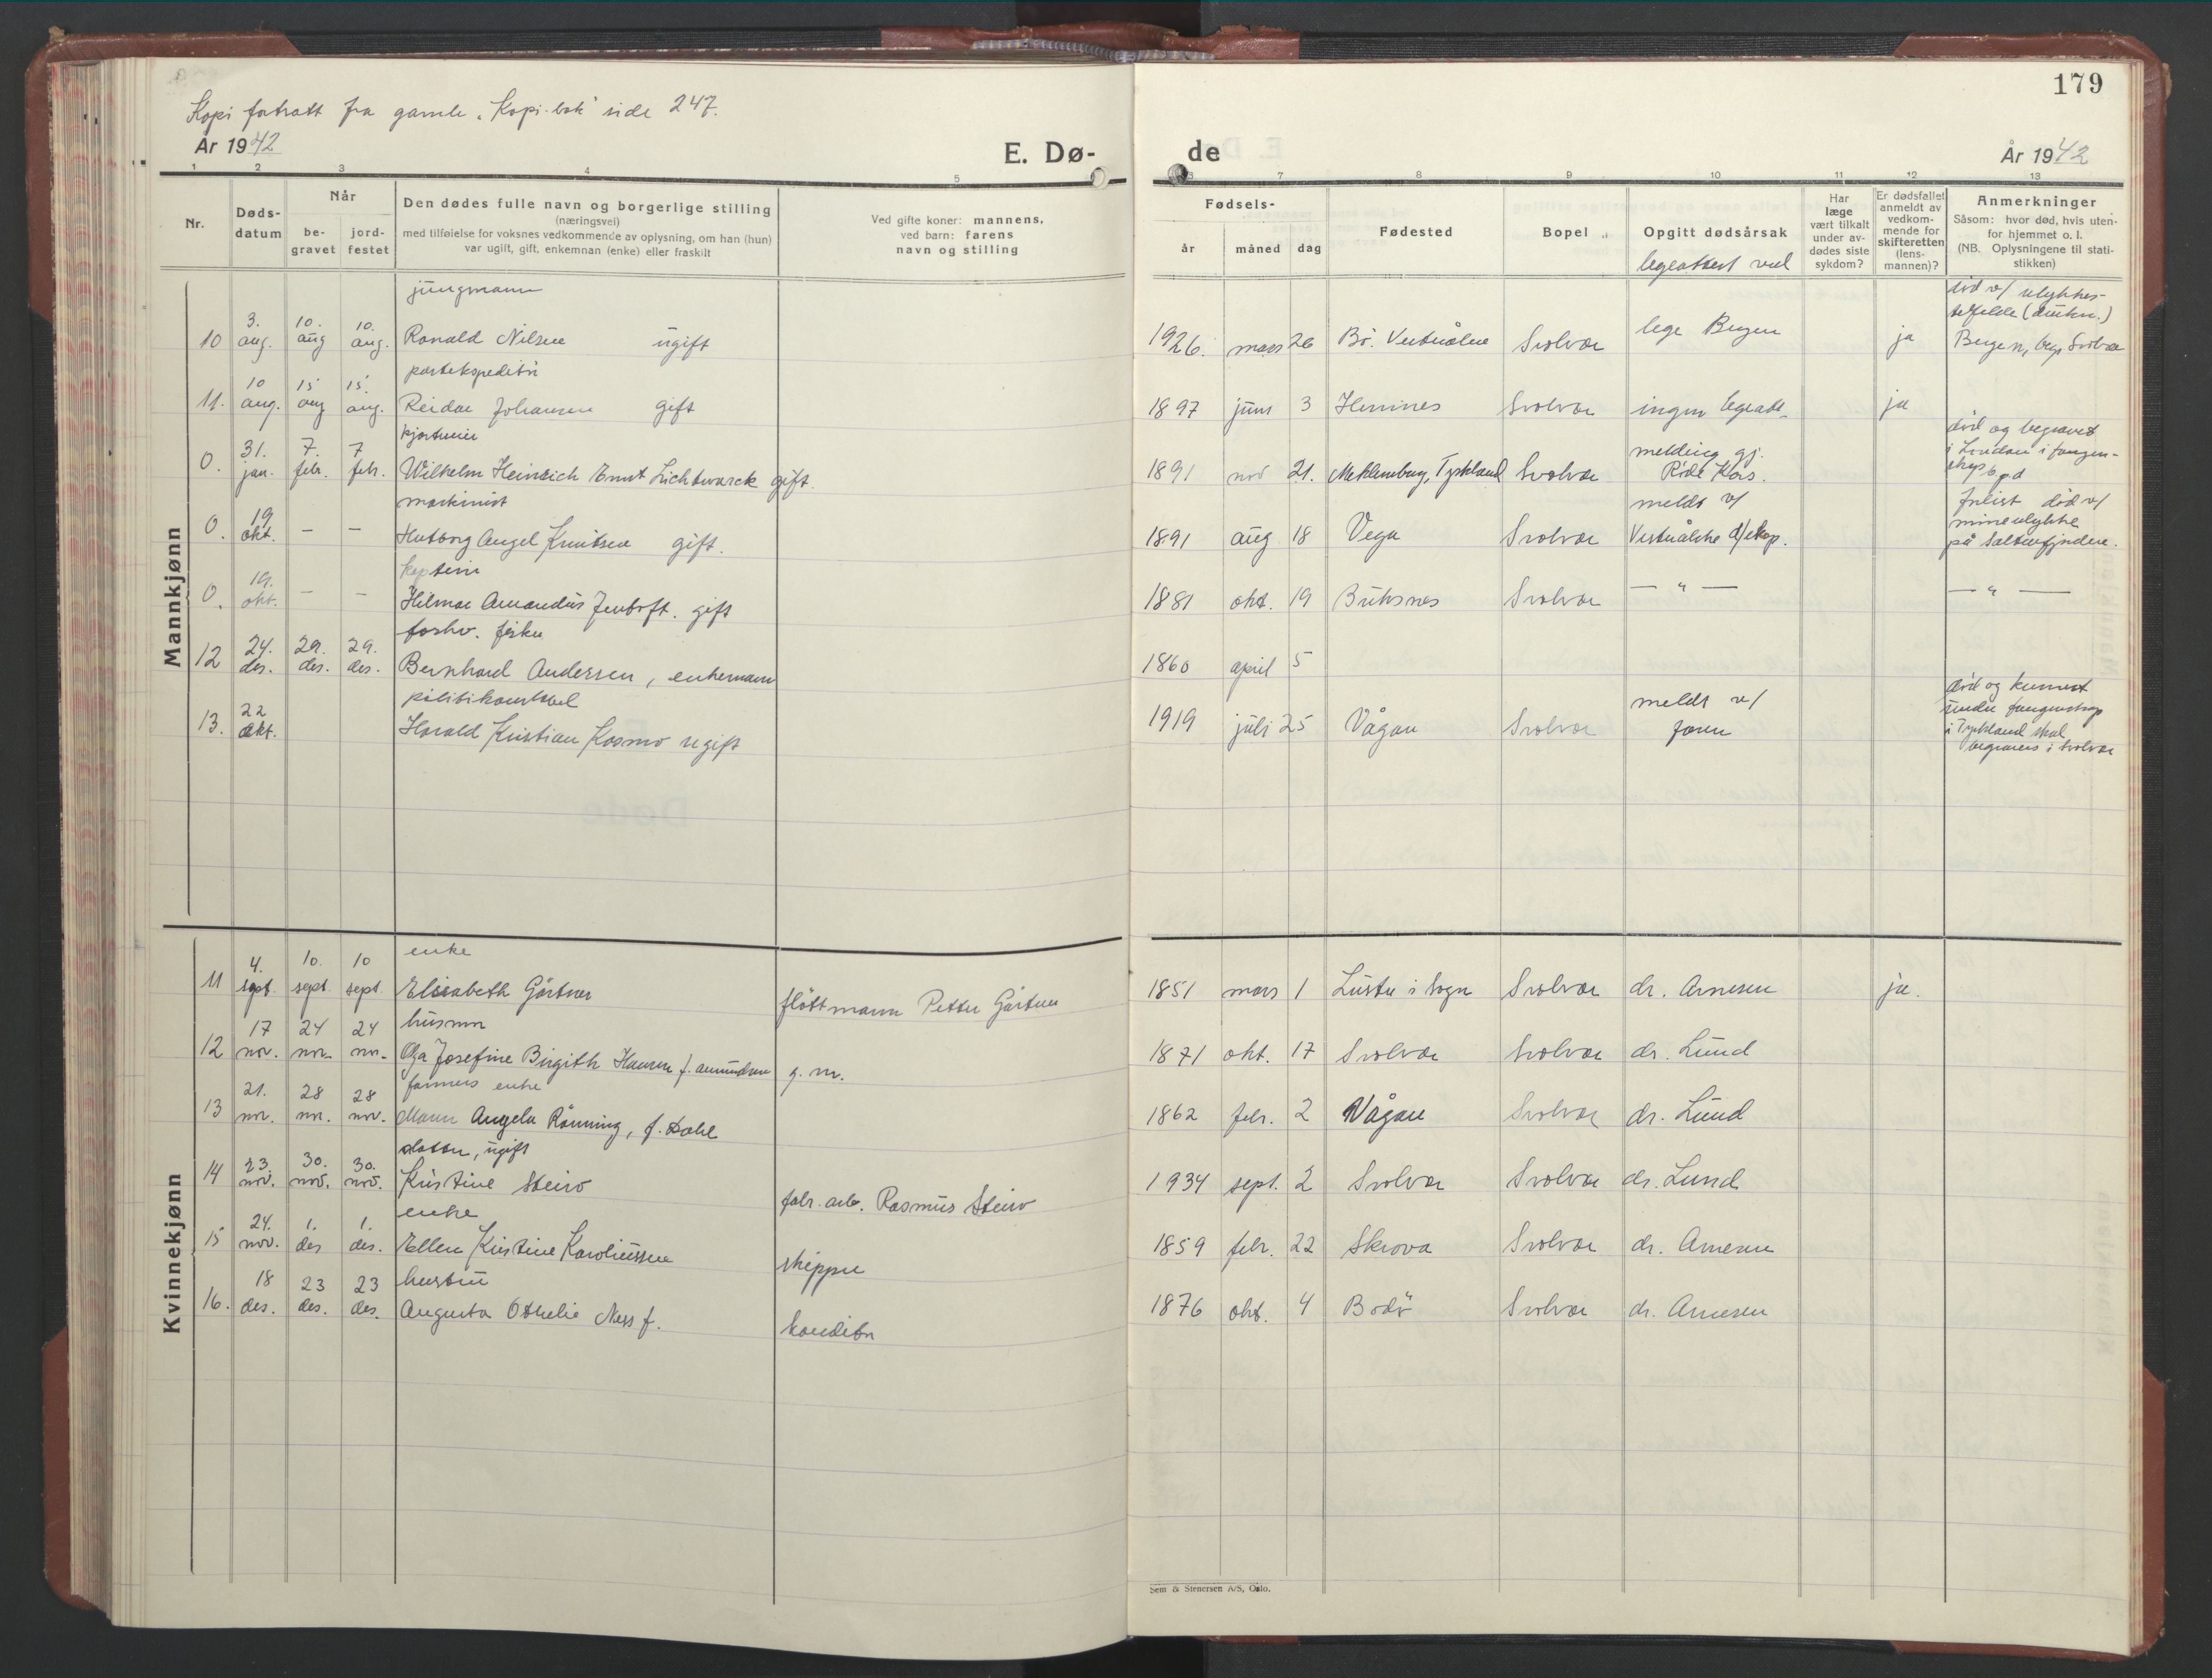 Kopi fortsatt fra gamle "Kopi-bok" side 247.
År 1942
E. Dø-
1 2 3 4 5
Nr.
Døds-
datum
Når
be-
gravet
jord-
festet
Den dødes fulle navn og borgerlige stilling
(næringsvei)
med tilføielse for voksnes vedkommende av oplysning, om han (hun)
var ugift, gift, enkemnan (enke) eller fraskilt
Ved gifte koner: mannens,
ved barn: farens
navn og stilling
Mannkjønn
jungmann
10 3. aug. 10. aug 10. aug. Ronald Nilsen ugift
postekspeditør
11. 10 aug. 15 aug 15. aug. Reidar Johansen gift
0. 31. jan. 7. febr. 7 febr. Wilhelm Heinrich Ernst Lichtwarck gift.
maskinist
0. 19 okt. – – Hutborg Angel Knutsen gift.
kaptein
0. 19. okt. – – Hilmar Amandus Jentoft. gift
forhv. fisker
12 24. des. 29. des. 29. des. Bernhard Andersen, enkemann
politikonstabel
13. 22 okt. Harald Kristian Kosmo ugift
Kvinnekjønn
enke
11 4. sept. 10. sept. 10 sept. Elisabeth Gärtner fløttmann Petter Gärtner
husmor
12 17 nov. 24 nov. 24 nov. Olga Josefine Birgith Hansen f. Amundsen g. m.
farmers enke
13 21. nov. 28 nov. 28 nov. Maren Angela Rönning, f. Dahl
datter, ugift
14 23. nov. 30. nov. 30. nov. Kristine Steiro fabr. arb. Rasmus Steiro
enke
15 24. nov. 1. des 1. des. Ellen Kristine Karoliussen skipper
hustru
16. 18 des. 23 des. 23 des. Augusta Othelie Ness f. konditor
179
de
År 1942
7 8 9 10 11 12 13
Fødsels-
år måned dag
Fødested
Bopel
Opgitt dødsårsak
legeattest ved
Har
læge
vært tilkalt
under av-
dødes siste
sykdom?
Er dødsfallet
anmeldt av
vedkom-
mende for
skifteretten
(lens-
mannen)?
Anmerkninger
Såsom: hvor død, hvis uten-
for hjemmet o. l.
(NB. Oplysningene til stati-
stikken)
1926. mars 26 Bö. Vesterålen Svolvær lege Bergen ja død v/ ulykkes-
tilfelle (drukn.)
Bergen, begr Svolvær
1897 juni 3 Hemnes Svolvær ingen legeatt. ja
1891 nov 21. Meklemburg, Tyskland Svolvær melding gj.
Röde Kors.
død og begravet
i London i fangen-
skap
1891 aug 18 Vega Svolvær meldt v/
Vesterålske d/skap.
forlist død v/
mineulykke
på Saltenfjorden.
1881 okt. 19 Buksnes Svolvær — " — — " —
1860 april 5
1919 juli 25 Vågan Svolvær meldt v/
faren
død og kremert
under fangenskap
i Tyskland skal
begraves i Svolvær
1851 mars 1 Luster i Sogn Svolvær dr. Arnesen ja.
1871 okt. 17 Svolvær Svolvær dr. Lund
1862 febr. 2 Vågan Svolvær dr. Lund
1934 sept. 2 Svolvær Svolvær dr. Lund
1859 febr. 22 Skrova Svolvær dr. Arnesen
1876 okt. 4 Bodö Svolvær dr. Arnesen
Sem & Stenersen A/S, Oslo.